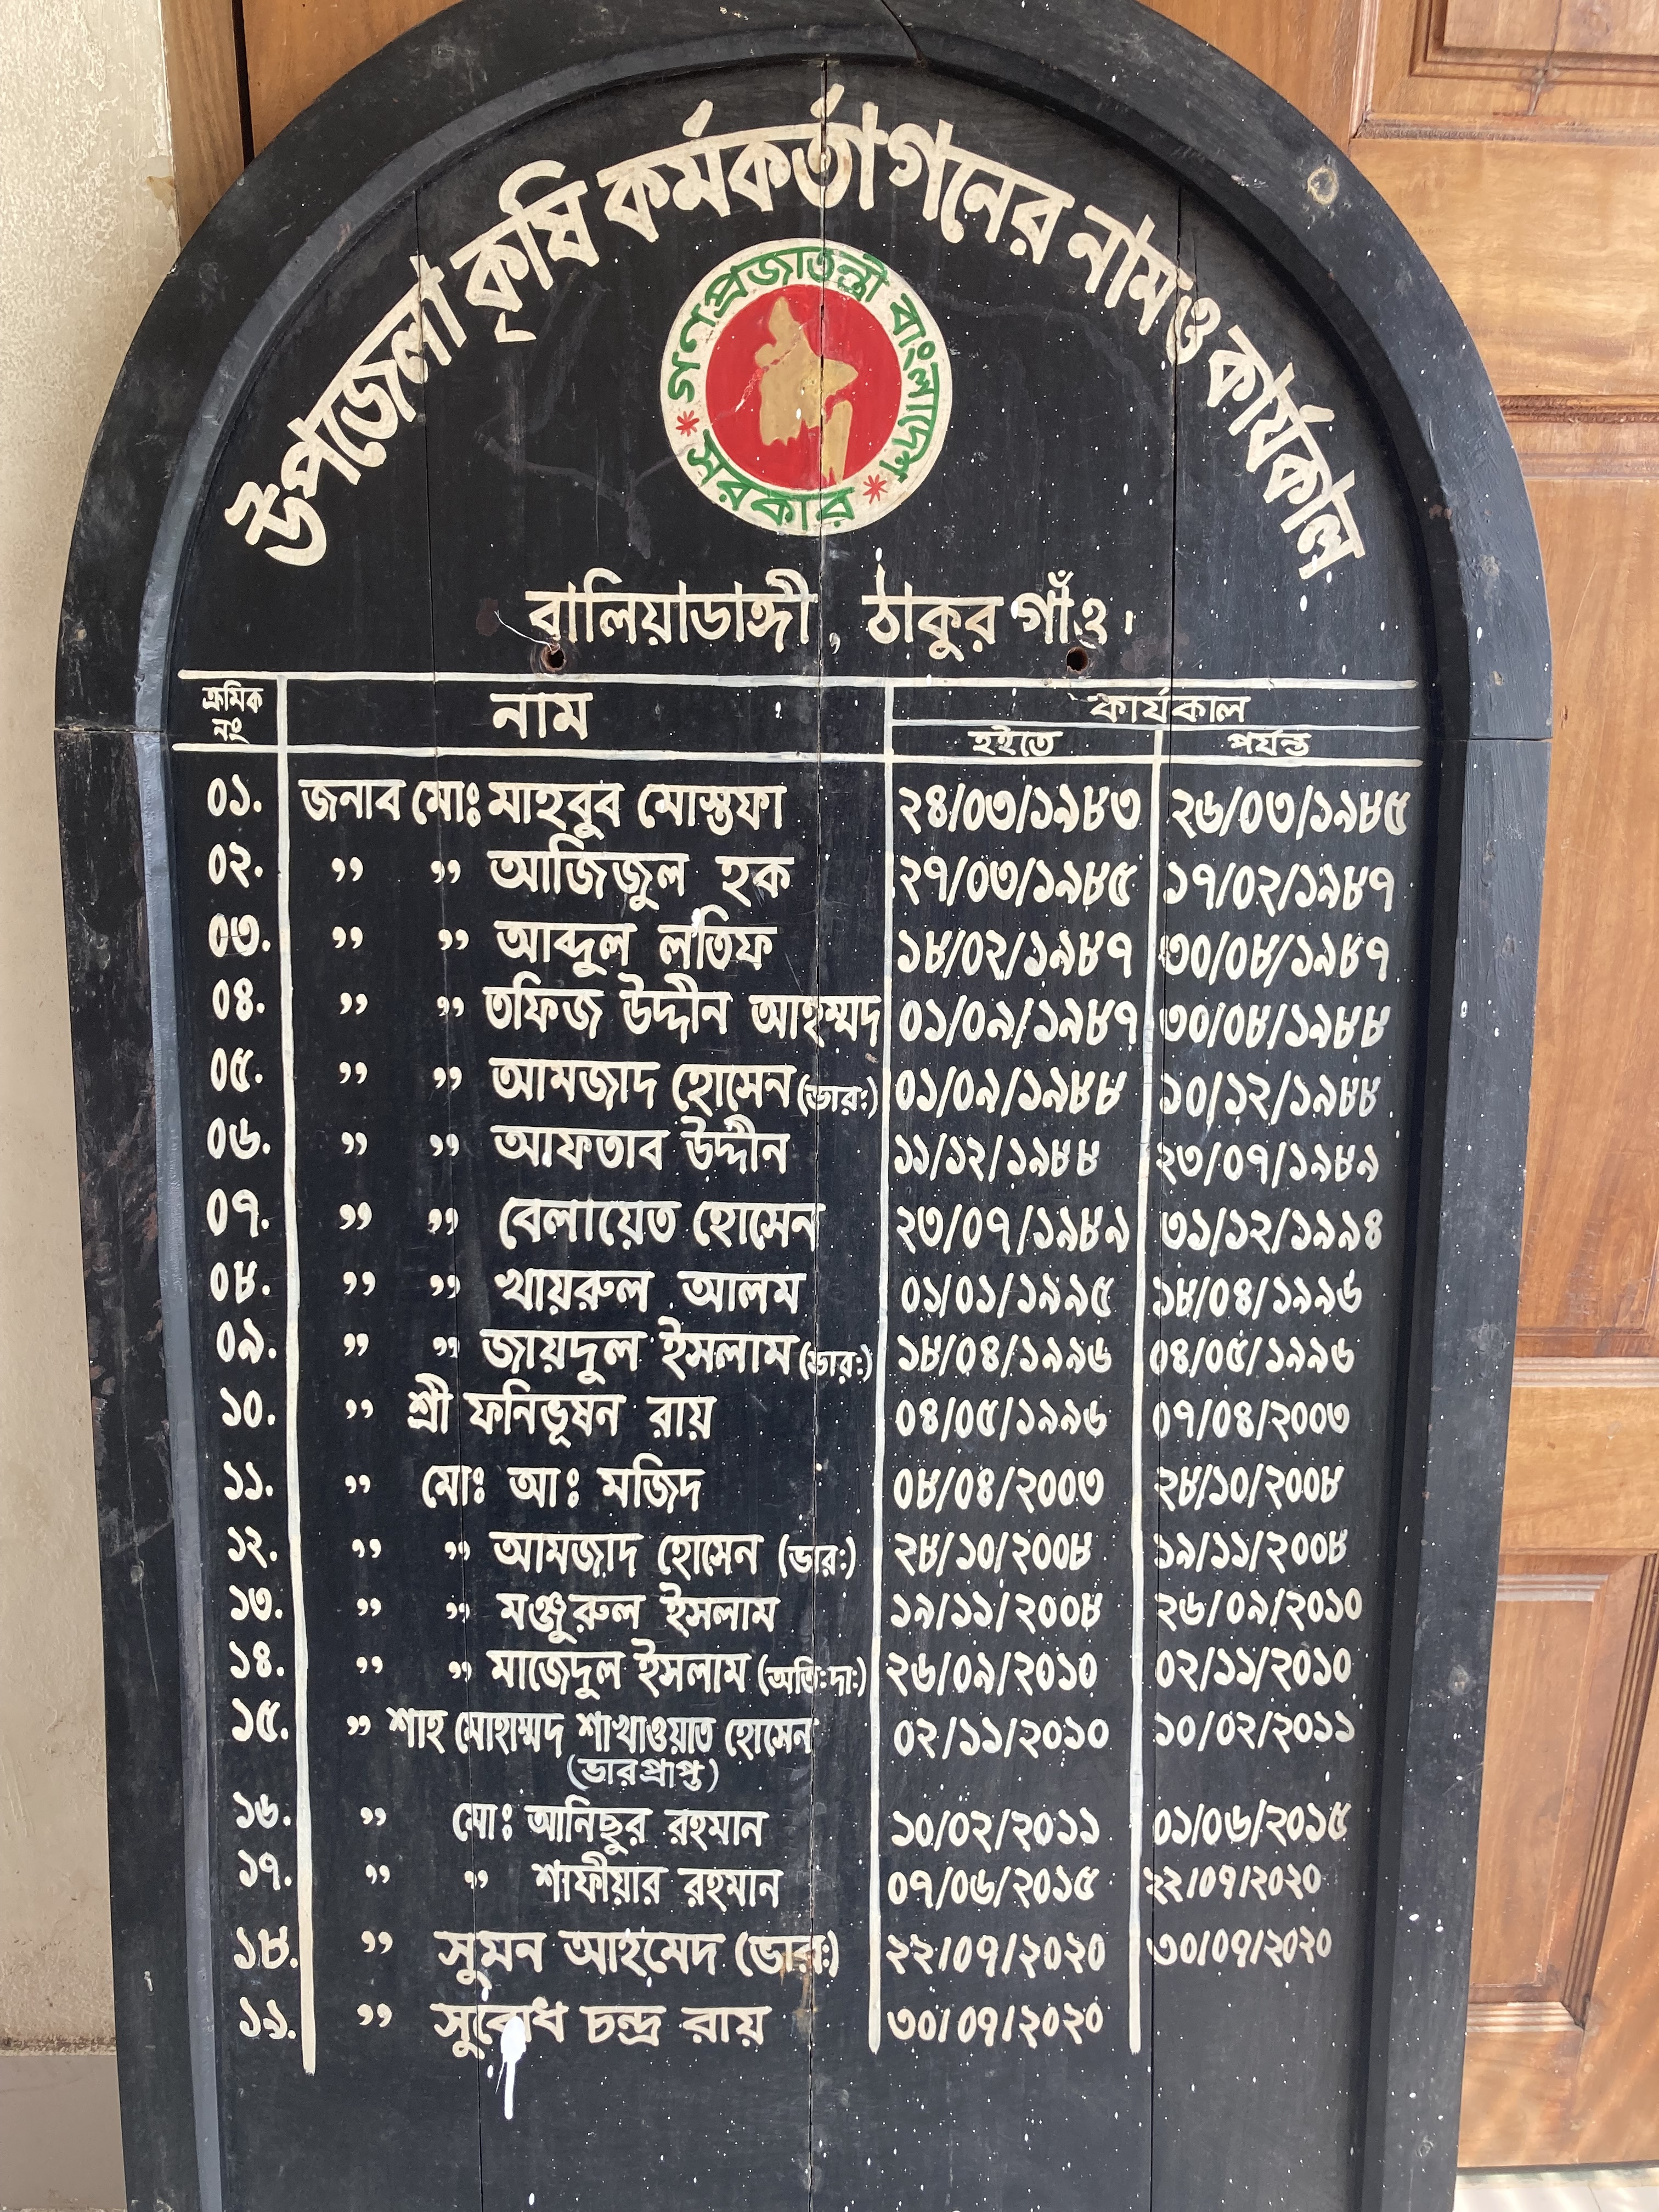 উপজেলা কৃষি কর্মকর্তা গনের নাম ও কার্যকাল
গণপ্রজাতন্ত্রী বাংলাদেশ
* সরকার *
বালিয়াডাঙ্গী, ঠাকুর গাঁও।
ক্রমিক নং নাম কার্যকাল
হইতে পর্যন্ত
০১. জনাব মোঃ মাহবুব মোস্তফা ২৪/০৩/১৯৮৩ ২৬/০৩/১৯৮৫
০২. ,, ,, আজিজুল হক ২৭/০৩/১৯৮৫ ১৭/০২/১৯৮৭
০৩. ,, ,, আব্দুল লতিফ ১৮/০২/১৯৮৭ ৩০/০৮/১৯৮৭
০৪. ,, ,, তফিজ উদ্দীন আহম্মদ ০১/০৯/১৯৮৭ ৩০/০৮/১৯৮৮
০৫. ,, ,, আমজাদ হোসেন (ভারঃ) ০১/০৯/১৯৮৮ ১০/১২/১৯৮৮
০৬. ,, ,, আফতাব উদ্দীন ১১/১২/১৯৮৮ ২৩/০৭/১৯৮৯
০৭. ,, ,, বেলায়েত হোসেন ২৩/০৭/১৯৮৯ ৩১/১২/১৯৯৪
০৮. ,, ,, খায়রুল আলম ০১/০১/১৯৯৫ ১৮/০৪/১৯৯৬
০৯. ,, ,, জায়দুল ইসলাম (ভারঃ) ১৮/০৪/১৯৯৬ ০৪/০৫/১৯৯৬
১০. ,, শ্রী ফনিভূষন রায় ০৪/০৫/১৯৯৬ ০৭/০৪/২০০৩
১১. ,, মোঃ আঃ মজিদ ০৮/০৪/২০০৩ ২৮/১০/২০০৮
১২. ,, ,, আমজাদ হোসেন (ভারঃ) ২৮/১০/২০০৮ ১৯/১১/২০০৮
১৩. ,, ,, মঞ্জুরুল ইসলাম ১৯/১১/২০০৮ ২৬/০৯/২০১০
১৪. ,, ,, মাজেদুল ইসলাম (অতিঃদাঃ) ২৬/০৯/২০১০ ০২/১১/২০১০
১৫. ,, শাহ মোহাম্মদ শাখাওয়াত হোসেন ০২/১১/২০১০ ১০/০২/২০১১
(ভারপ্রাপ্ত)
১৬. ,, মোঃ আনিছুর রহমান ১০/০২/২০১১ ০১/০৬/২০১৫
১৭. ,, ,, শাফীয়ার রহমান ০৭/০৬/২০১৫ ২২/০৭/২০২০
১৮. ,, সুমন আহমেদ (ভারঃ) ২২/০৭/২০২০ ৩০/০৭/২০২০
১৯. ,, সুবোধ চন্দ্র রায় ৩০/০৭/২০২০